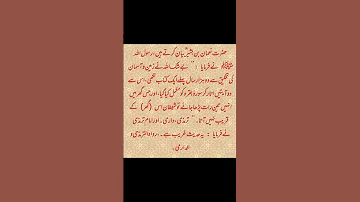 حضرت نعمان بن بشیرؓ بیان کرتے ہیں، رسول اللہ
ﷺ نے فرمایا : '' بے شک اللہ نے زمین و آسمان
کی تخلیق سے دو ہزار سال پہلے ایک کتاب لکھی، اس سے
دو آیتیں اتار کر سورۃ بقرہ کو مکمل کیا گیا، اور جس گھر میں
انہیں تین رات پڑھا جائے تو شیطان اس (گھر) کے
قریب نہیں آتا۔'' ترمذی، دارمی۔ اور امام ترمذی
نے فرمایا : یہ حدیث غریب ہے۔، رواہ الترمذی و
الدارمی۔